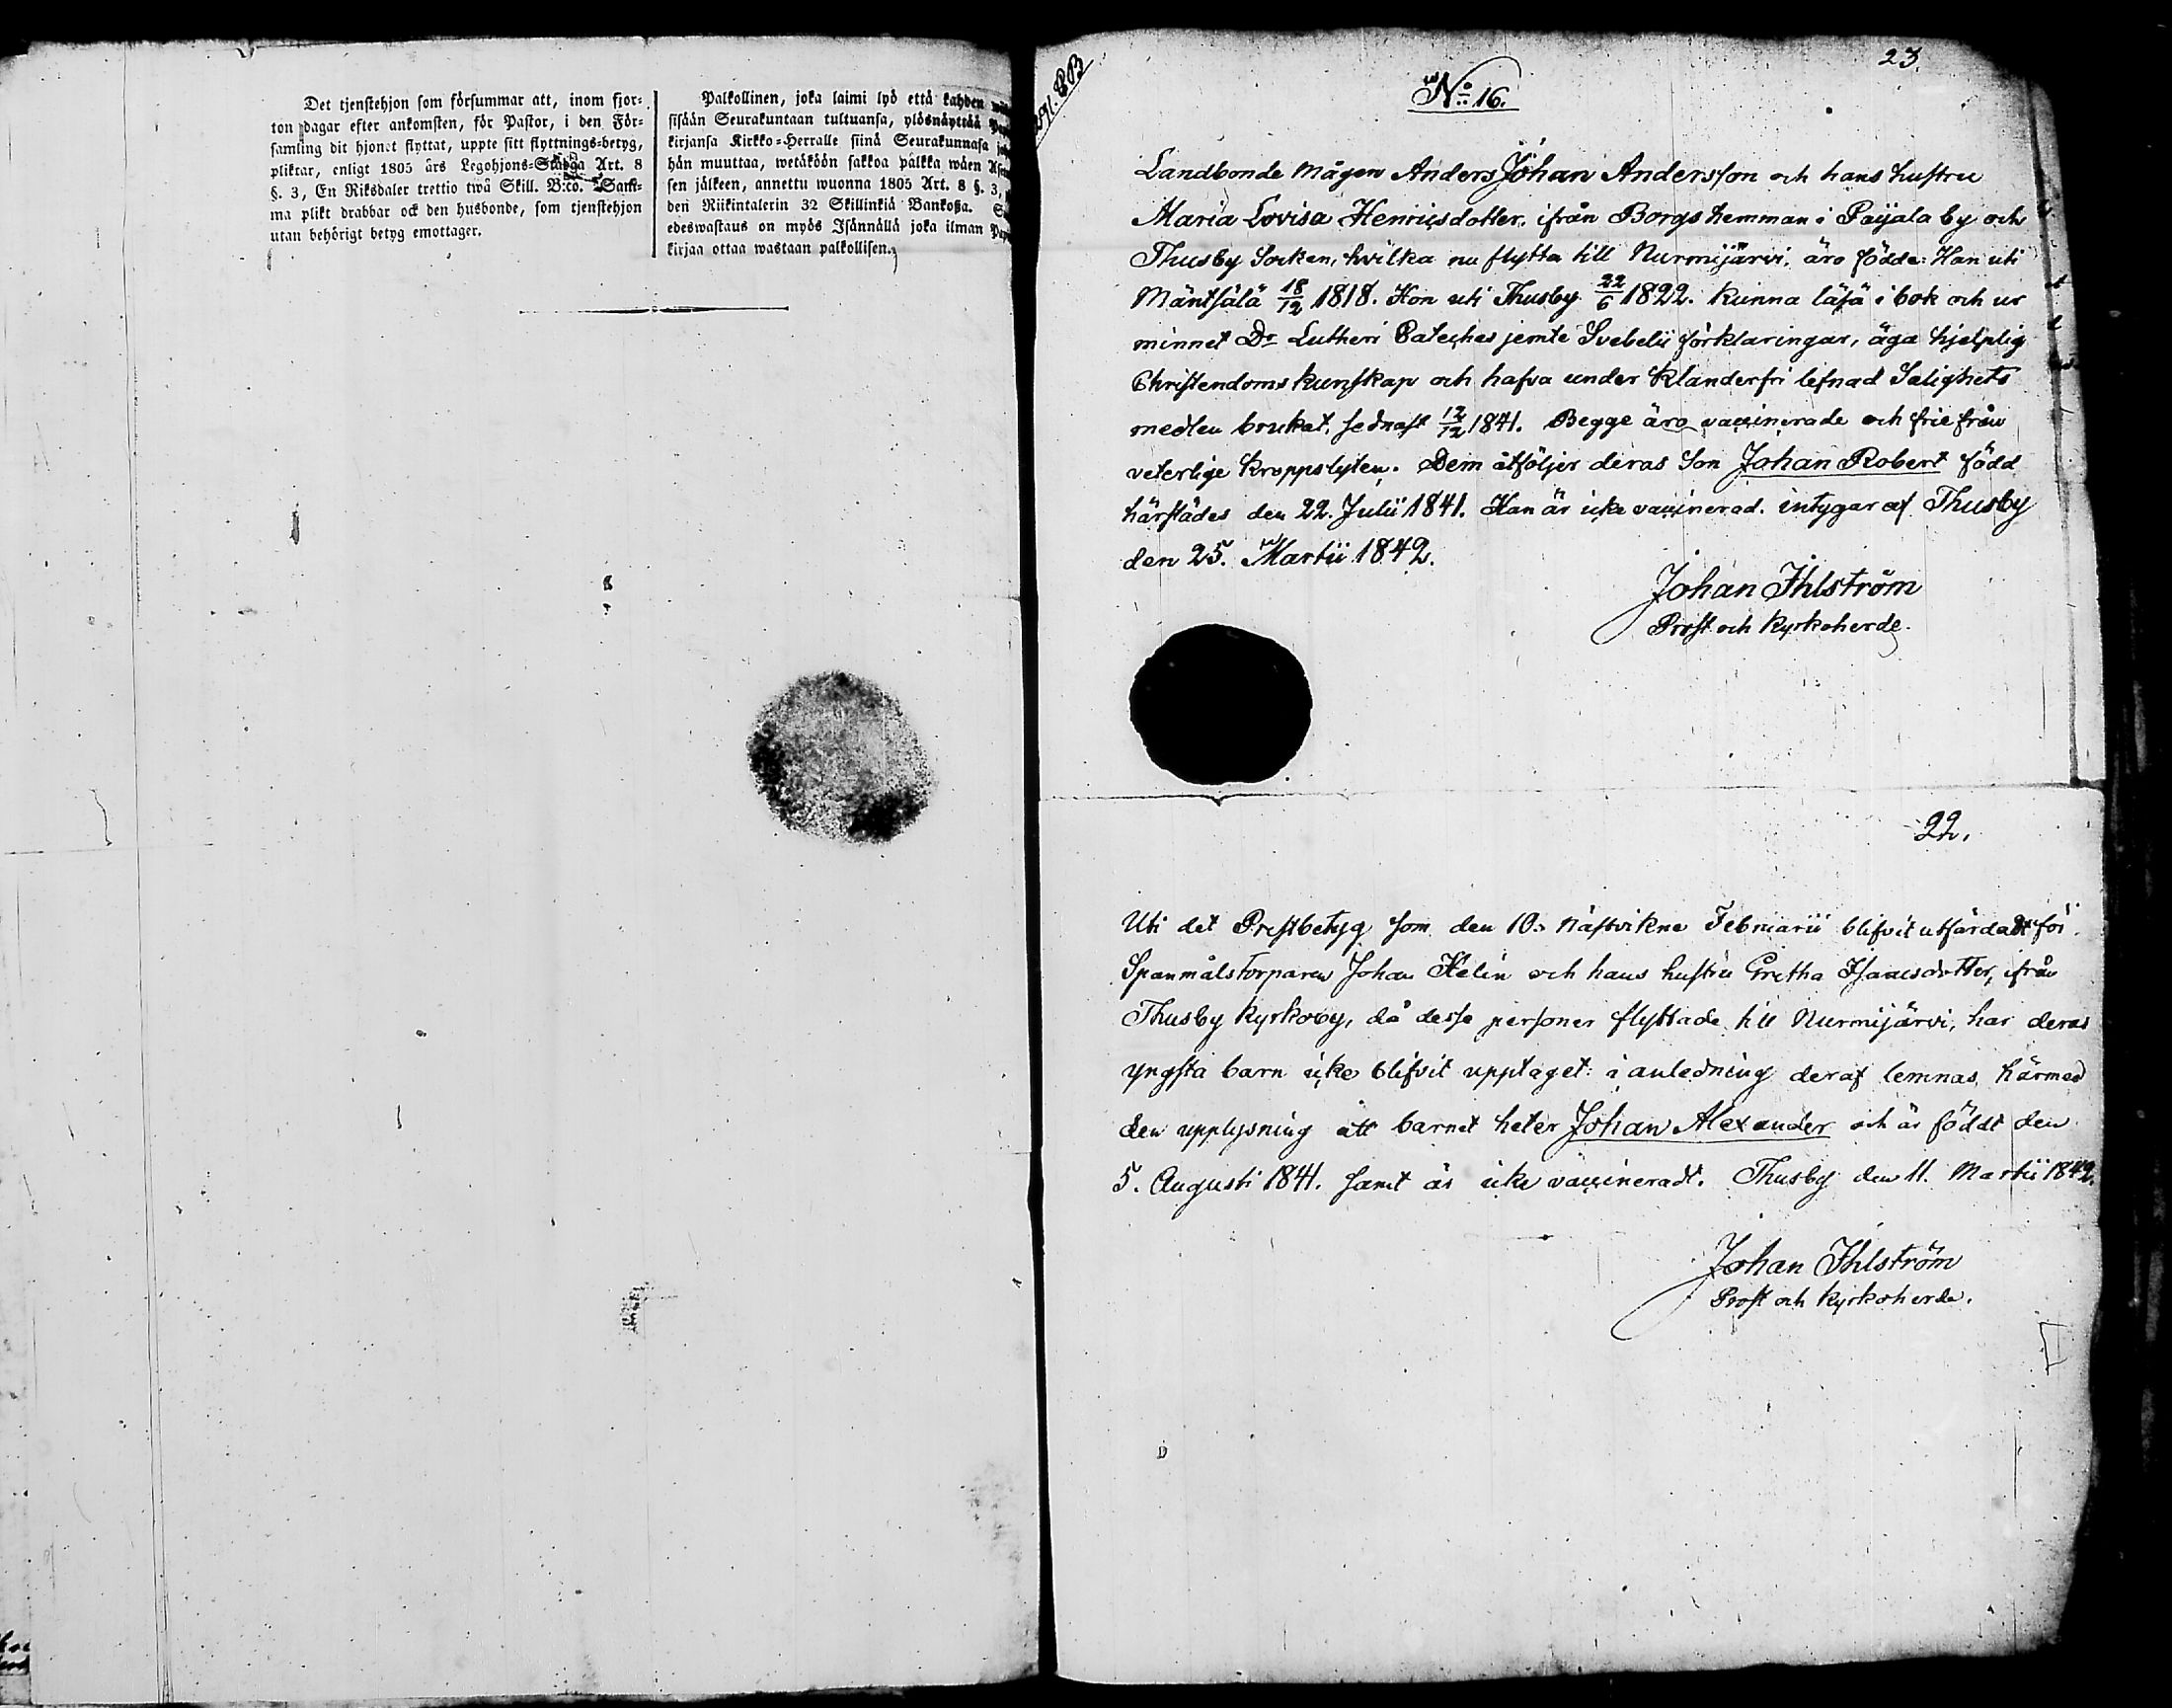 Det tjenstehjon som försummar att, inom fjor-
ton dagar efter ankomsten, för Pastor, i den För-
samling dit hjonet flyttat, uppte sitt flyttnings-betyg,
pliktar, enligt 1805 års Legohjons-Stadga Art. 8
§. 3, En Riksdaler trettio twå Skill. B:co. Sam-
ma plikt drabbar ock den husbonde, som tjenstehjon
utan behörigt betyg emottager.
Palkollinen, joka laimi lyö että kahden
sisään Seurakuntaan tultuansa, ylösnäyttää
kirjansa Kirkko-Herralle siinä Seurakunnasa
hän muuttaa, wetäköön sakkoa palkka wäen
sen jälkeen, annettu wuonna 1805 Art. 8 §. 3,
den Riikintalerin 32 Skillinkiä Bankoßa.
edeswastaus on myös Isännällä joka ilman
kirjaa ottaa wastaan palkollisen.
23.
No 16.
Landbonde Mågen Anders Johan Andersson och hans hustru
Maria Lovisa Henricsdotter, ifrån Borgs hemman i Paijala by och
Thusby Socken, hvilka nu flytta till Nurmijärvi, äro födde: Han uti
Mäntsälä 18/12 1818. Hon uti Thusby 22/6 1822. Kunna läsa i bok och ur
minnet Dr Lutheri Cateches jemte Svebelii förklaringar, äga hjelplig
Christendoms kunskap och hafva under klanderfri lefnad Salighets
medlen brukat, sednast 12/12 1841. Begge äro vaccinerade och frie från
veterlige kroppslyten. Dem åtföljer deras Son Johan Robert född
härstädes den 22. Julii 1841. Han är icke vaccinerad. intygar af Thusby
den 25. Martii 1842.
Johan Ihlström
Prost och Kyrkoherde.
22.
Uti det Prestbetyg som den 10. nästvikne Februarii blifvit utfärdadt för
Spanmålstorparen Johan Helin och hans hustru Gretha Isaacsdotter, ifrån
Thusby Kyrkoby, då desse personer flyttade till Nurmijärvi, har deras
yngsta barn icke blifvit upptaget: i anledning deraf lemnas härmed
den upplysning att barnet heter Johan Alexander och är födt den
5. Augusti 1841. samt är icke vaccineradt. Thusby den 11. Martii 1842.
Johan Ihlström
Prost och Kyrkoherde.